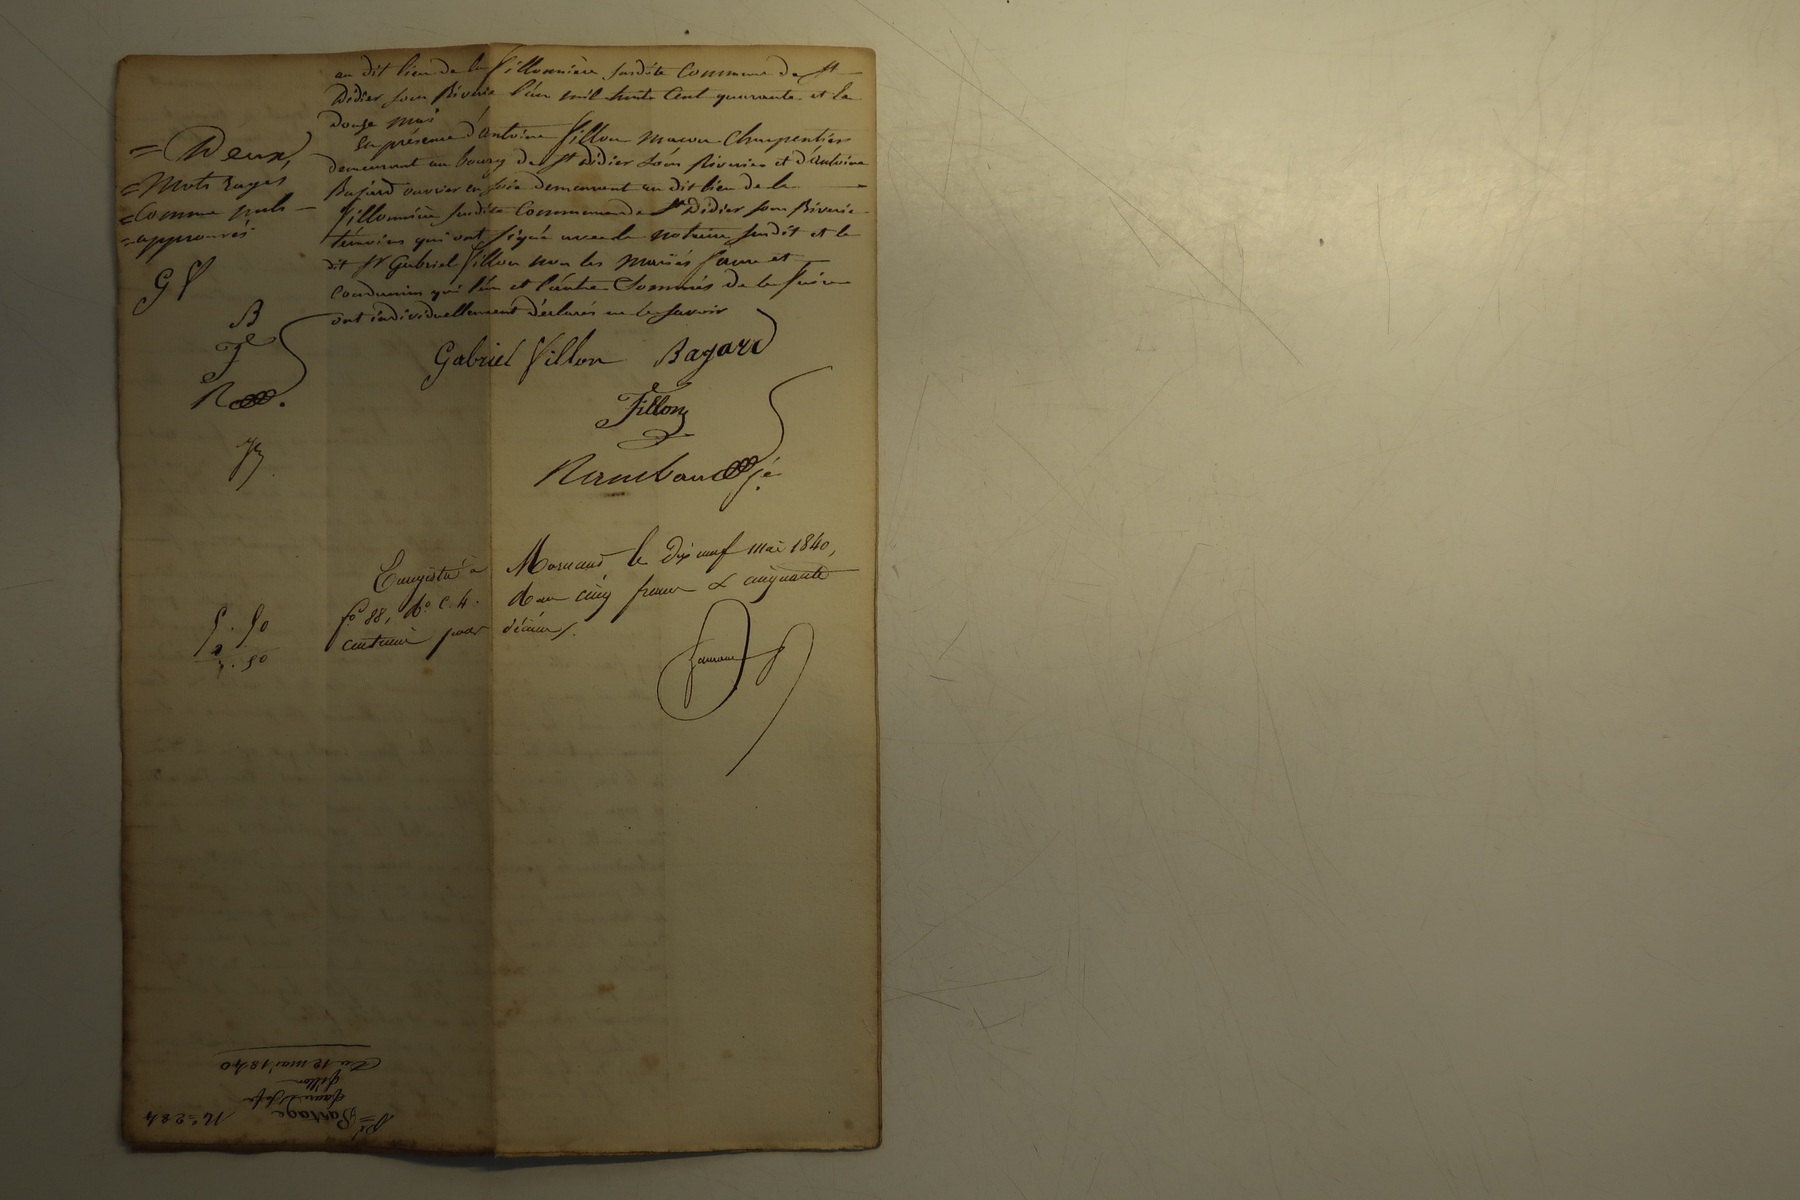 au dit lieu de la fillonnière susdite commune de St
Didier sous Riverie l'an mil huit cent quarante et le
douze mai
En présence d'antoine fillon macon charpentier
demeurant au bourg de St Didier sous Riverie et d'antoine
Bajard ouvrier en soie demeurant au dit lieu de la
fillonnière susdite commune de St Didier sous Riverie
témoins qui ont signé avec le notaire susdit et le
dit Sr Gabriel fillon non les mariés faure et
qui l'un et l'autre sommés de le faire
ont individuellement déclarés ne le savoir
= Deux
= mots rayés
= comme nuls
= approuvés
G f
B
F
R
Gabriel fillon Bajard
Fillon
Enregistré à Mornant le dix neuf mai 1840,
fo 88, Ro C. 4. Reçu cinq francs & cinquante
centimes pour décime
5. 50
N° = 284
Partage
fillon
Du 12 mai 1840